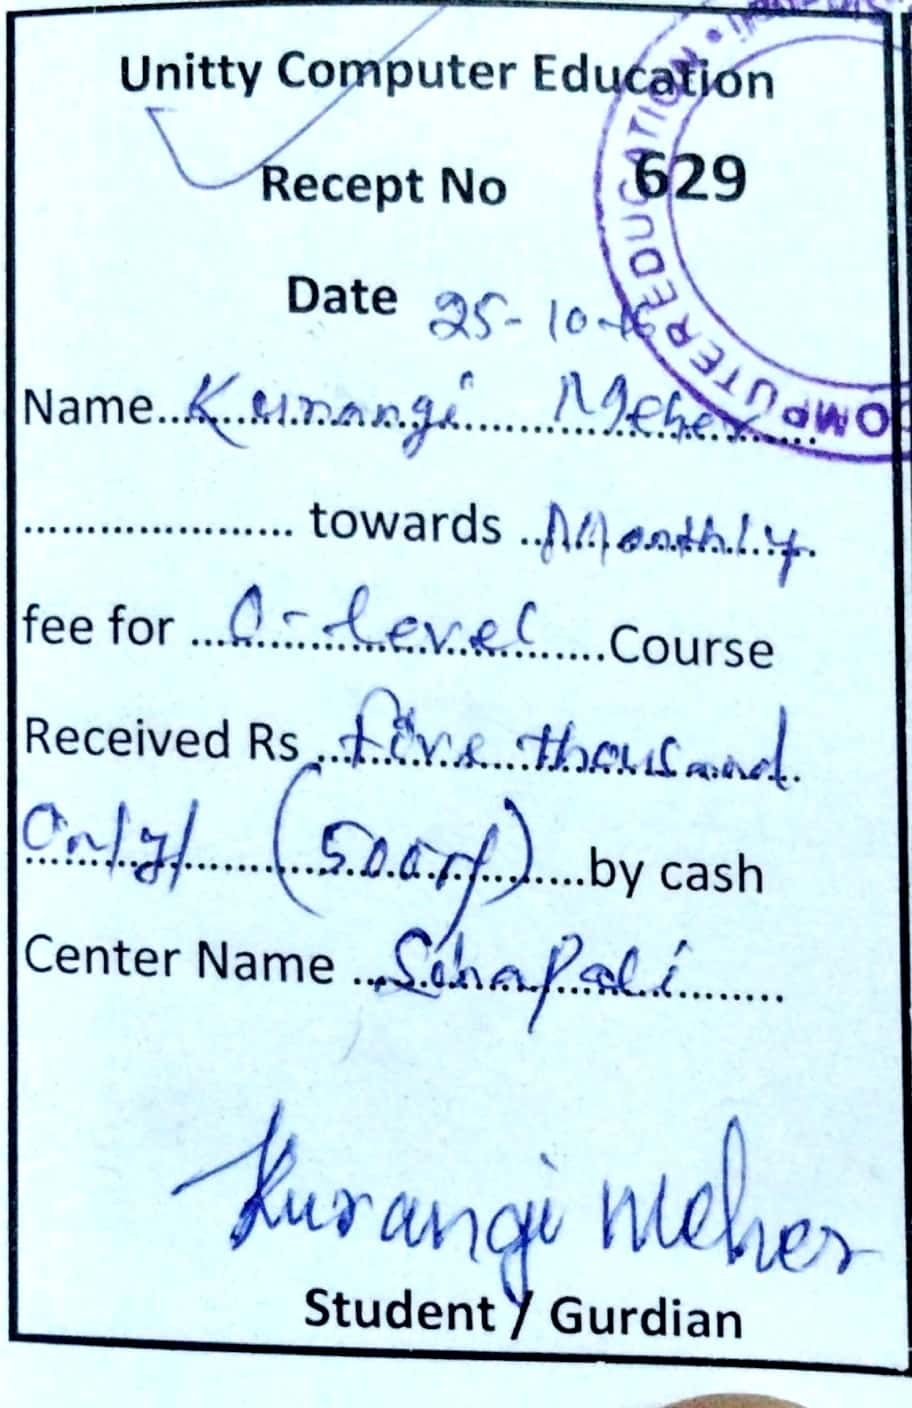 Unitty Computer Education
Recept No 629
Date 25-10-16
Name..Kurangi Meher
..................... towards ..Monthly
fee for ...O-level......Course
Received Rs ...five thousand
only/ (5000/-).....by cash
Center Name ...Sohapali........
Kurangi Meher
Student / Gurdian
COMPUTER EDUCATION